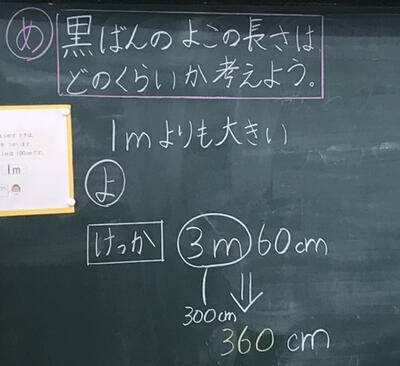 め 黒ばんのよこの長さは
どのくらいか考えよう。
1mよりも大きい
1m
よ
けっか 3m60cm
300cm
360 cm